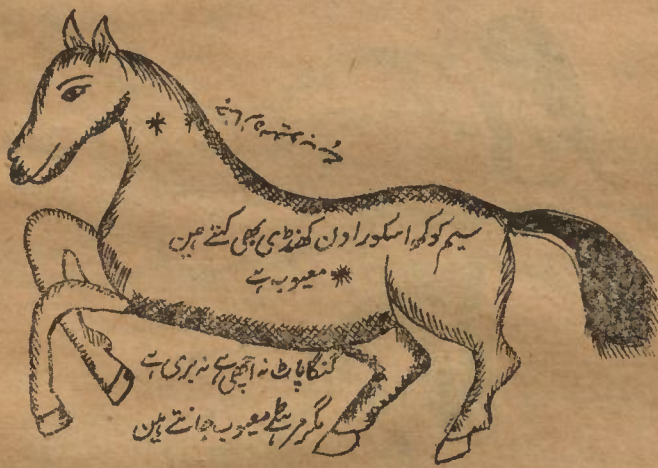 سیم کوکھ اسکور اون کھنڈی بھی کہتے ہین
معیوب ہے
گنگا پاٹ نہ اچھی ہے نہ بری ہے
مگر مرہٹے معیوب جانتے ہین